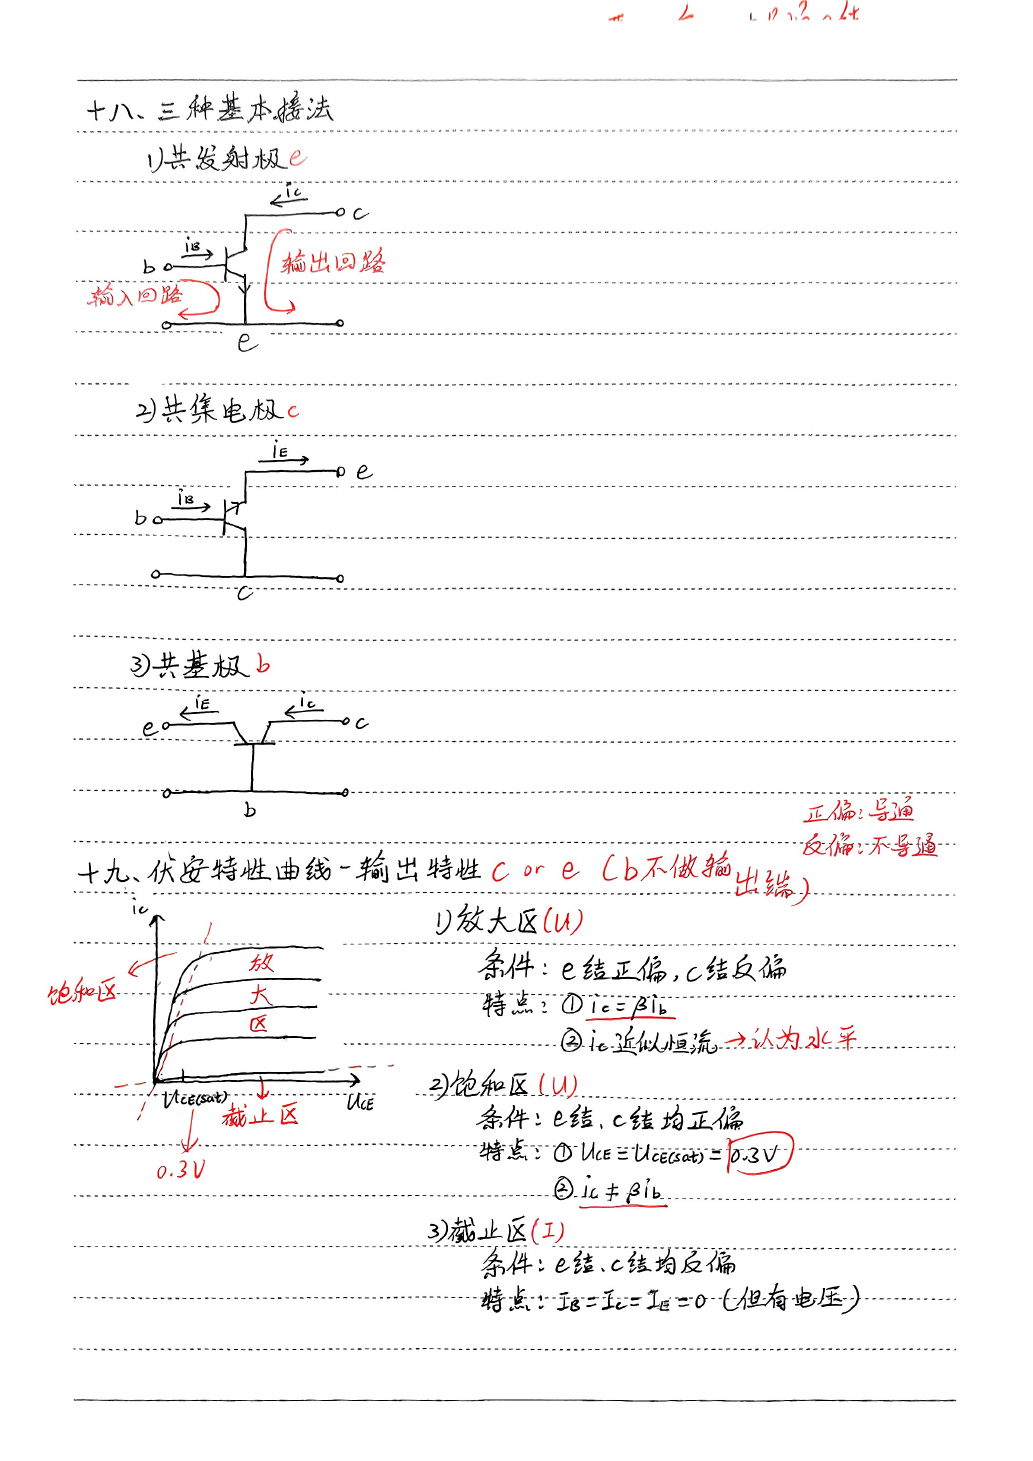 十八、三种基本接法
1)共发射极e
ic
c
iB
b
输出回路
输入回路
e
2)共集电极c
iE
e
iB
b
c
3)共基极b
iE
ic
e
c
b
正偏:导通
反偏:不导通
十九、伏安特性曲线-输出特性 c or e (b不做输出端)
ic
饱和区
放
大
区
UCE(sat)
UCE
截止区
0.3V
1)放大区(U)
条件: e结正偏,c结反偏
特点: ① ic=βib
② ic近似恒流→认为水平
2)饱和区(U)
条件: e结、c结均正偏
特点: ① UCE=UCE(sat)=0.3V
② ic≠βib
3)截止区(I)
条件: e结、c结均反偏
特点: IB=Ic=IE=0 (但有电压)